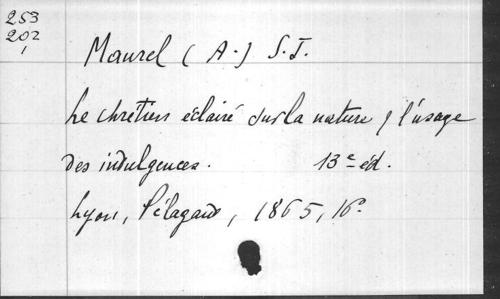 253
202
1
Maurel (A.) S.J.
Le chrétien éclairé sur la nature & l'usage
des indulgences. 13e éd.
Lyon, Pélagaud, 1865, 16o.